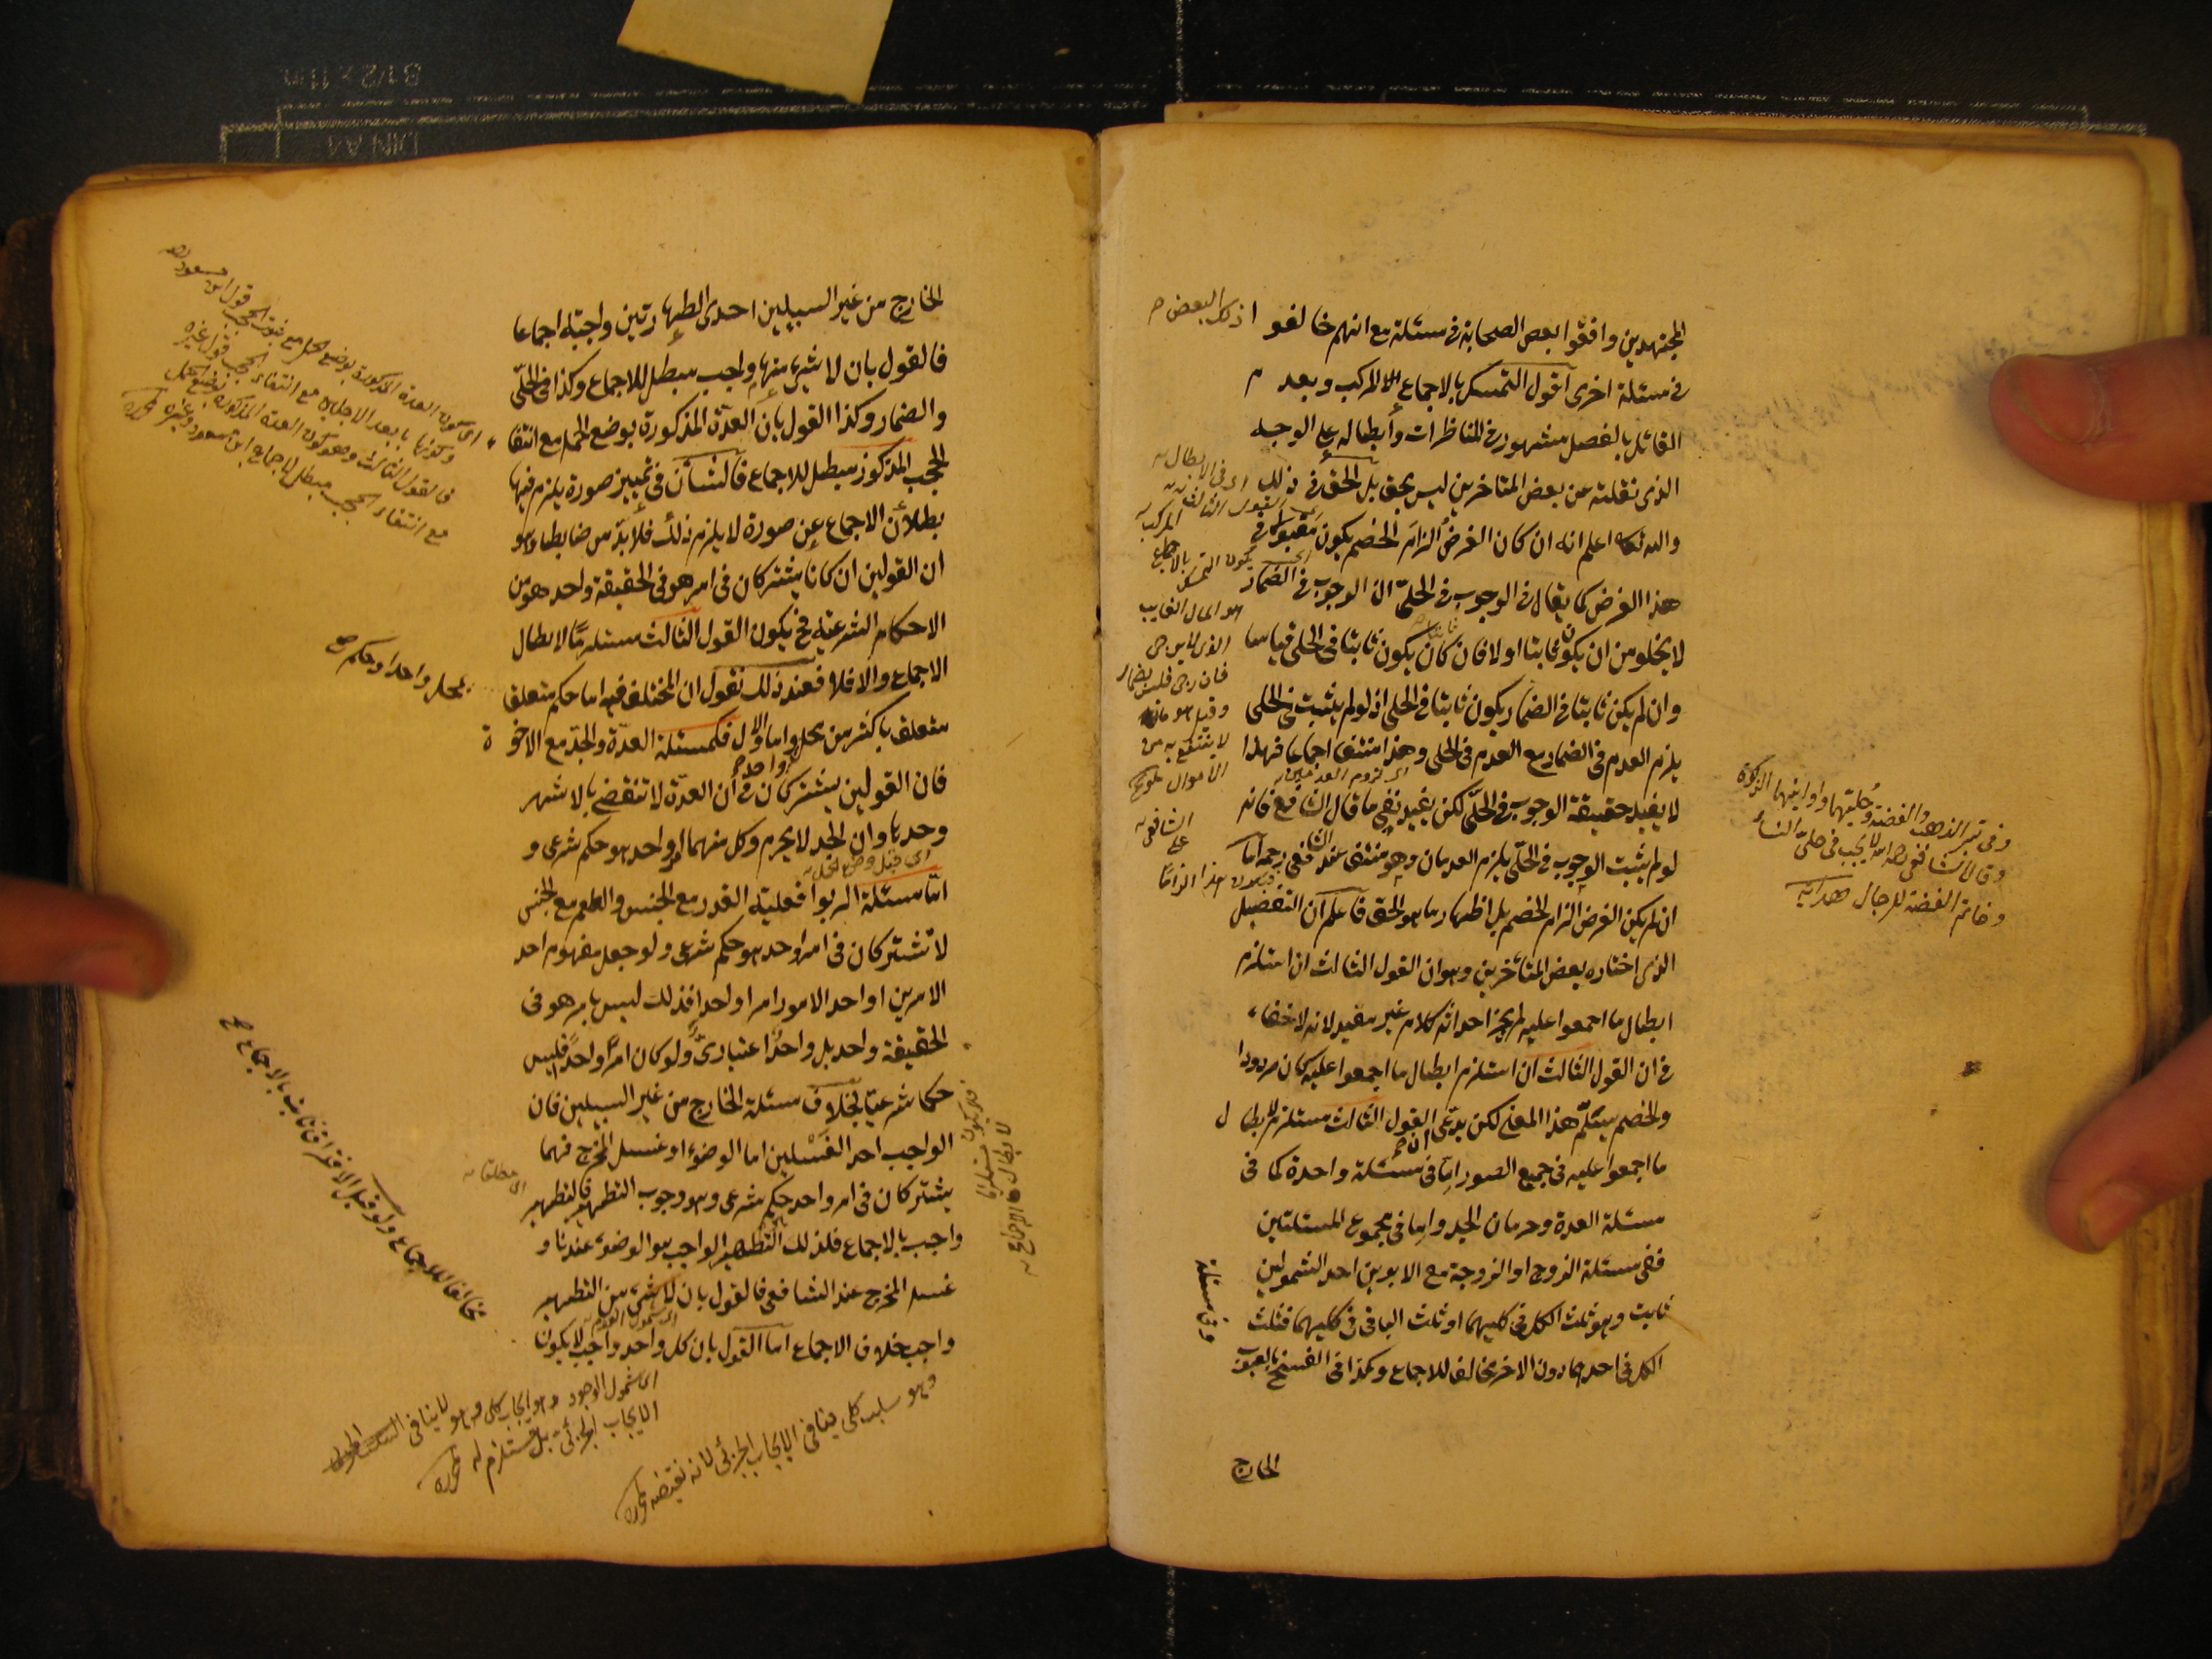 المجتهدين وافقوا بعض الصحابة في مسئلة مع انهم خالفوا
ذلك البعض
في مسئلة اخرى اقول التمسك بالاجماع المركب وبعدم
القائل بالفصل مشهور في المناظرات وابطاله على الوجه
الذي نقلته عن بعض المتاخرين ليس بحق بل الحق في ذلك
والله تعالى اعلم انه ان كان الغرض الزام الخصم يكون مقبولا في
هذا الغرض كما يقال في الوجوب في الحلي ان الوجوب في الضمار
لا يخلو من ان يكون ثابتا او لا فان كان يكون ثابتا في الحلي قياسا
وان لم يكن ثابتا في الضمار يكون ثابتا في الحلي اذ لو لم يثبت في الحلي
يلزم العدم في الضمار مع العدم في الحلي وهذا منتف اجماعا فهذا
لا يفيد حقيقة الوجوب في الحلي لكن يفيد نفي ما قال الشافعي فانه
لو لم يثبت الوجوب في الحلي يلزم العدمان وهو منتف عند الشافعي رحمه اما
ان لم يكن الغرض الزام الخصم بل اظهار ما هو الحق فاعلم ان التفصيل
الذي اختاره بعض المتأخرين وهو ان القول الثالث ان استلزم
ابطال ما اجمعوا عليه لم يجز احداثه كلام غير مفيد لانه لا خفاء
في ان القول الثالث ان استلزم ابطال ما اجمعوا عليه كان مردودا
والخصم يسلم هذا المعنى لكن يدعى ان القول الثالث مستلزم لابطال
ما اجمعوا عليه في جميع الصور اما في مسئلة واحدة كما في
مسئلة العدة وحرمان الجد واما في مجموع المسئلتين
ففي مسئلة الزوج او الزوجة مع الابوين احد الشمولين
ثابت وهو ثلث الكل في كليهما او ثلث الباقي في كليهما فثلث
الكل في احدهما دون الاخر مخالف للاجماع وكذا في الفسخ بالعيوب
وفي مسئلة
الخارج
هو المال الغايب
الذي لا يرجى
فان رجى فليس بضمار
وقيل هو ما
لا ينتفع به من
الاموال
وفي تبر الذهب والفضة وحليهما واوانيهما الزكوة
وقال الشافعي رحمه الله لا يجب في حلي النساء
وخاتم الفضة للرجال هداية
الخارج من غير السبيلين احدى الطهارتين واجبة اجماعا
فالقول بان لا شيء منهما واجب مبطل للاجماع وكذا في الحلي
والضمار وكذا القول بان العدة المذكورة بوضع الحمل مع انتفاء
الحجب المذكور مبطل للاجماع فالشأن في تمييز صورة يلزم فيها
بطلان الاجماع عن صورة لا يلزم ذلك فلا بد من ضابط وهو
ان القولين ان كانا يشتركان في امر هو في الحقيقة واحد هو من
الاحكام الشرعية فح يكون القول الثالث مستلزما لابطال
الاجماع والا فلا فعند ذلك نقول ان المختلف فيه اما حكم متعلق
بمحل واحد او حكم صح
متعلق باكثر من محل واحد اما الاول فكمسئلة العدة والجد مع الاخوة
فان القولين يشتركان في ان العدة لا تنقضي بالاشهر
وحدها وان الجد لا يحرم وكل منهما امر واحد هو حكم شرعي و
اي قبل وضع الحمل
اما مسئلة الربوا فعلية القدر مع الجنس والطعم مع الجنس
لا تشتركان في امر واحد هو حكم شرعي ولو جعل مفهوم احد
الامرين او احد الامور امرا واحدا فذلك ليس بامر هو في
الحقيقة واحد بل واحد اعتباري ولو كان امرا واحدا فليس
حكما شرعيا بخلاف مسئلة الخارج من غير السبيلين فان
الواجب احد الغسلين اما الوضوء او غسل المخرج فهما
يشتركان في امر واحد حكم شرعي وهو وجوب التطهير فالتطهير
واجب بالاجماع فلذلك التطهير الواجب هو الوضوء عندنا و
غسل المخرج عند الشافعي فالقول بان لا شيء من التطهير
اي شمول العدم
واجب خلاف الاجماع اما القول بان كل واحد واجب لا يكون
مخالفا للاجماع ولو قيل الافتراق ثابت بالاجماع
فالقول الثالث وهو كون العدة المذكورة بوضع الحمل
مع انتفاء الحجب مبطل لاجماع ابن مسعود وغيره
اي شمول الوجود وهو ايجاب كلي وهو لا ينافي
الايجاب الجزئي بل مستلزم له
وهو سلب كلي ينافي الايجاب الجزئي لانه نقيضه